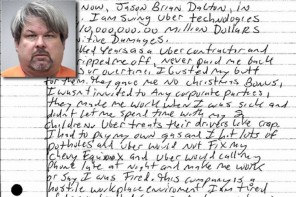 now, Jason Brian Dalton, in
I am suing Uber technologies
10,000,000.00 million Dollars
itive Damages.
ked years as a Uber contractor and
ipped me off, never paid me back
our overtime. I busted my butt
for them. They gave me no christmas Bonus,
I wasn't invited to Any corporate parties,
they made me work when I was sick and
didn't let me spend time with my 2
children. Uber treats their drivers like crap.
I had to pay my own gas and I hit lots of
potholes and Uber would not Fix my
chevy Equinox and Uber would call my
phone late at night and make me work
or say I was Fired. This company is a
hostile workplace enviroment I am tired